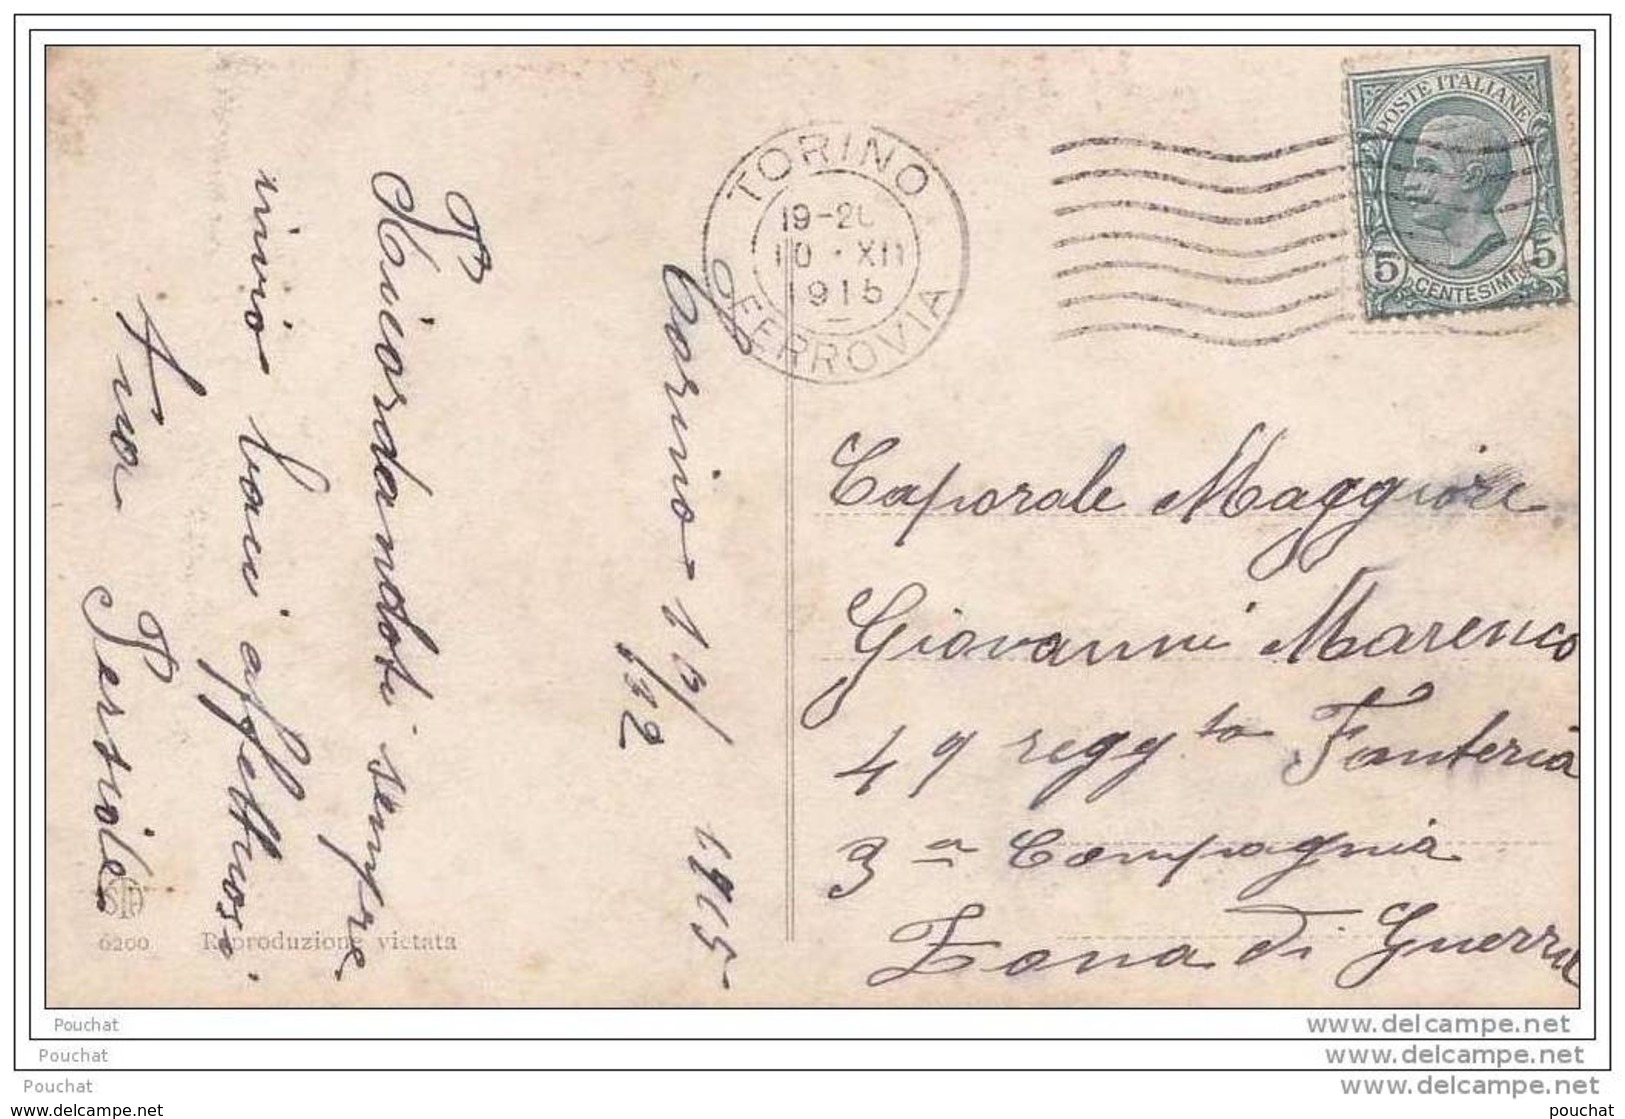 POSTE ITALIANE
5 CENTESIMI 5
TORINO
19-20
10·XII
1915
FERROVIA
Torino 10/12 1915
Ricordandoti sempre
invio baci affettuosi
Tua
Caporale Maggiore
Giovanni Marenco
49 reggto Fanteria
3a Compagnia
Zona di Guerra
6200 Reproduzione vietata
Pouchat
www.delcampe.net
Pouchat
www.delcampe.net
Pouchat
www.delcampe.net
www.delcampe.net
pouchat